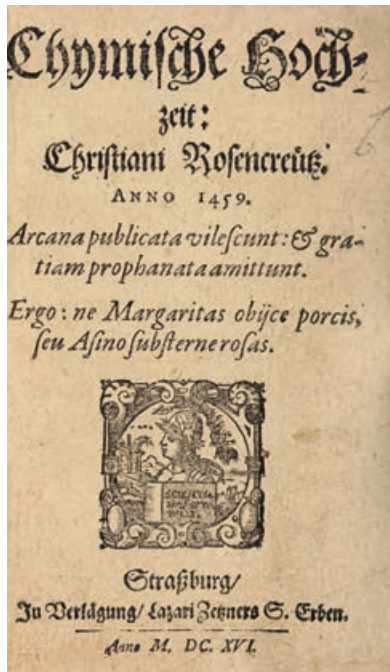 Chymische Hoch-
zeit:
Christiani Rosencreütz.
ANNO 1459.
Arcana publicata vilescunt: & gra-
tiam prophanata amittunt.
Ergo: ne Margaritas obijce porcis,
seu Asino substerne rosas.
Straßburg/
In Verlägung/ Lazari Zetzners S. Erben.
Anno M. DC. XVI.